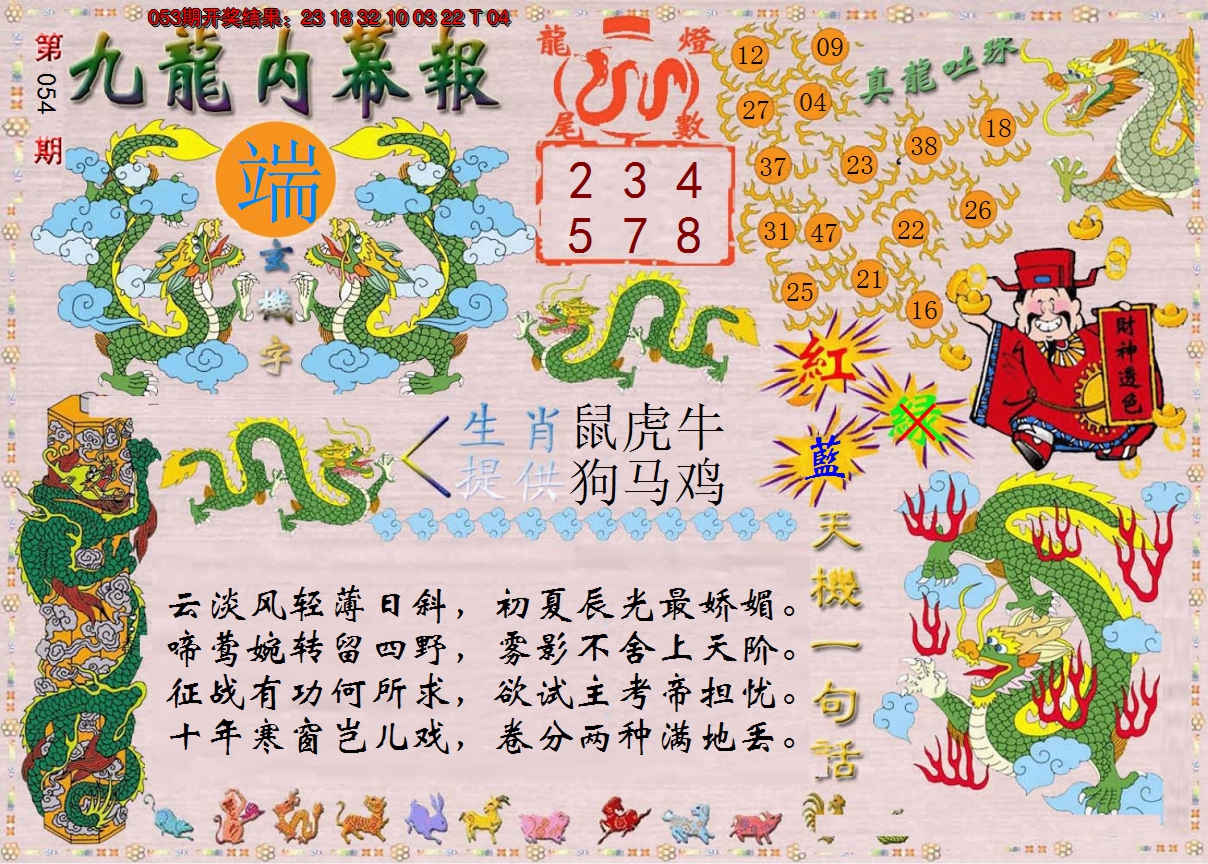 053期开奖结果：23 18 32 10 03 22 T 04
第054期
九龍内幕報
端
玄機字
龍燈
尾數
2 3 4
5 7 8
真龍吐珠
12 09
27 04
37 23 38 18
31 47 22 26
25 21 16
財神透色
紅
绿
藍
生肖 鼠虎牛
提供 狗马鸡
天機一句話
云淡风轻薄日斜，初夏辰光最娇媚。
啼莺婉转留四野，雾影不舍上天阶。
征战有功何所求，欲试主考帝担忧。
十年寒窗岂儿戏，卷分两种满地丢。